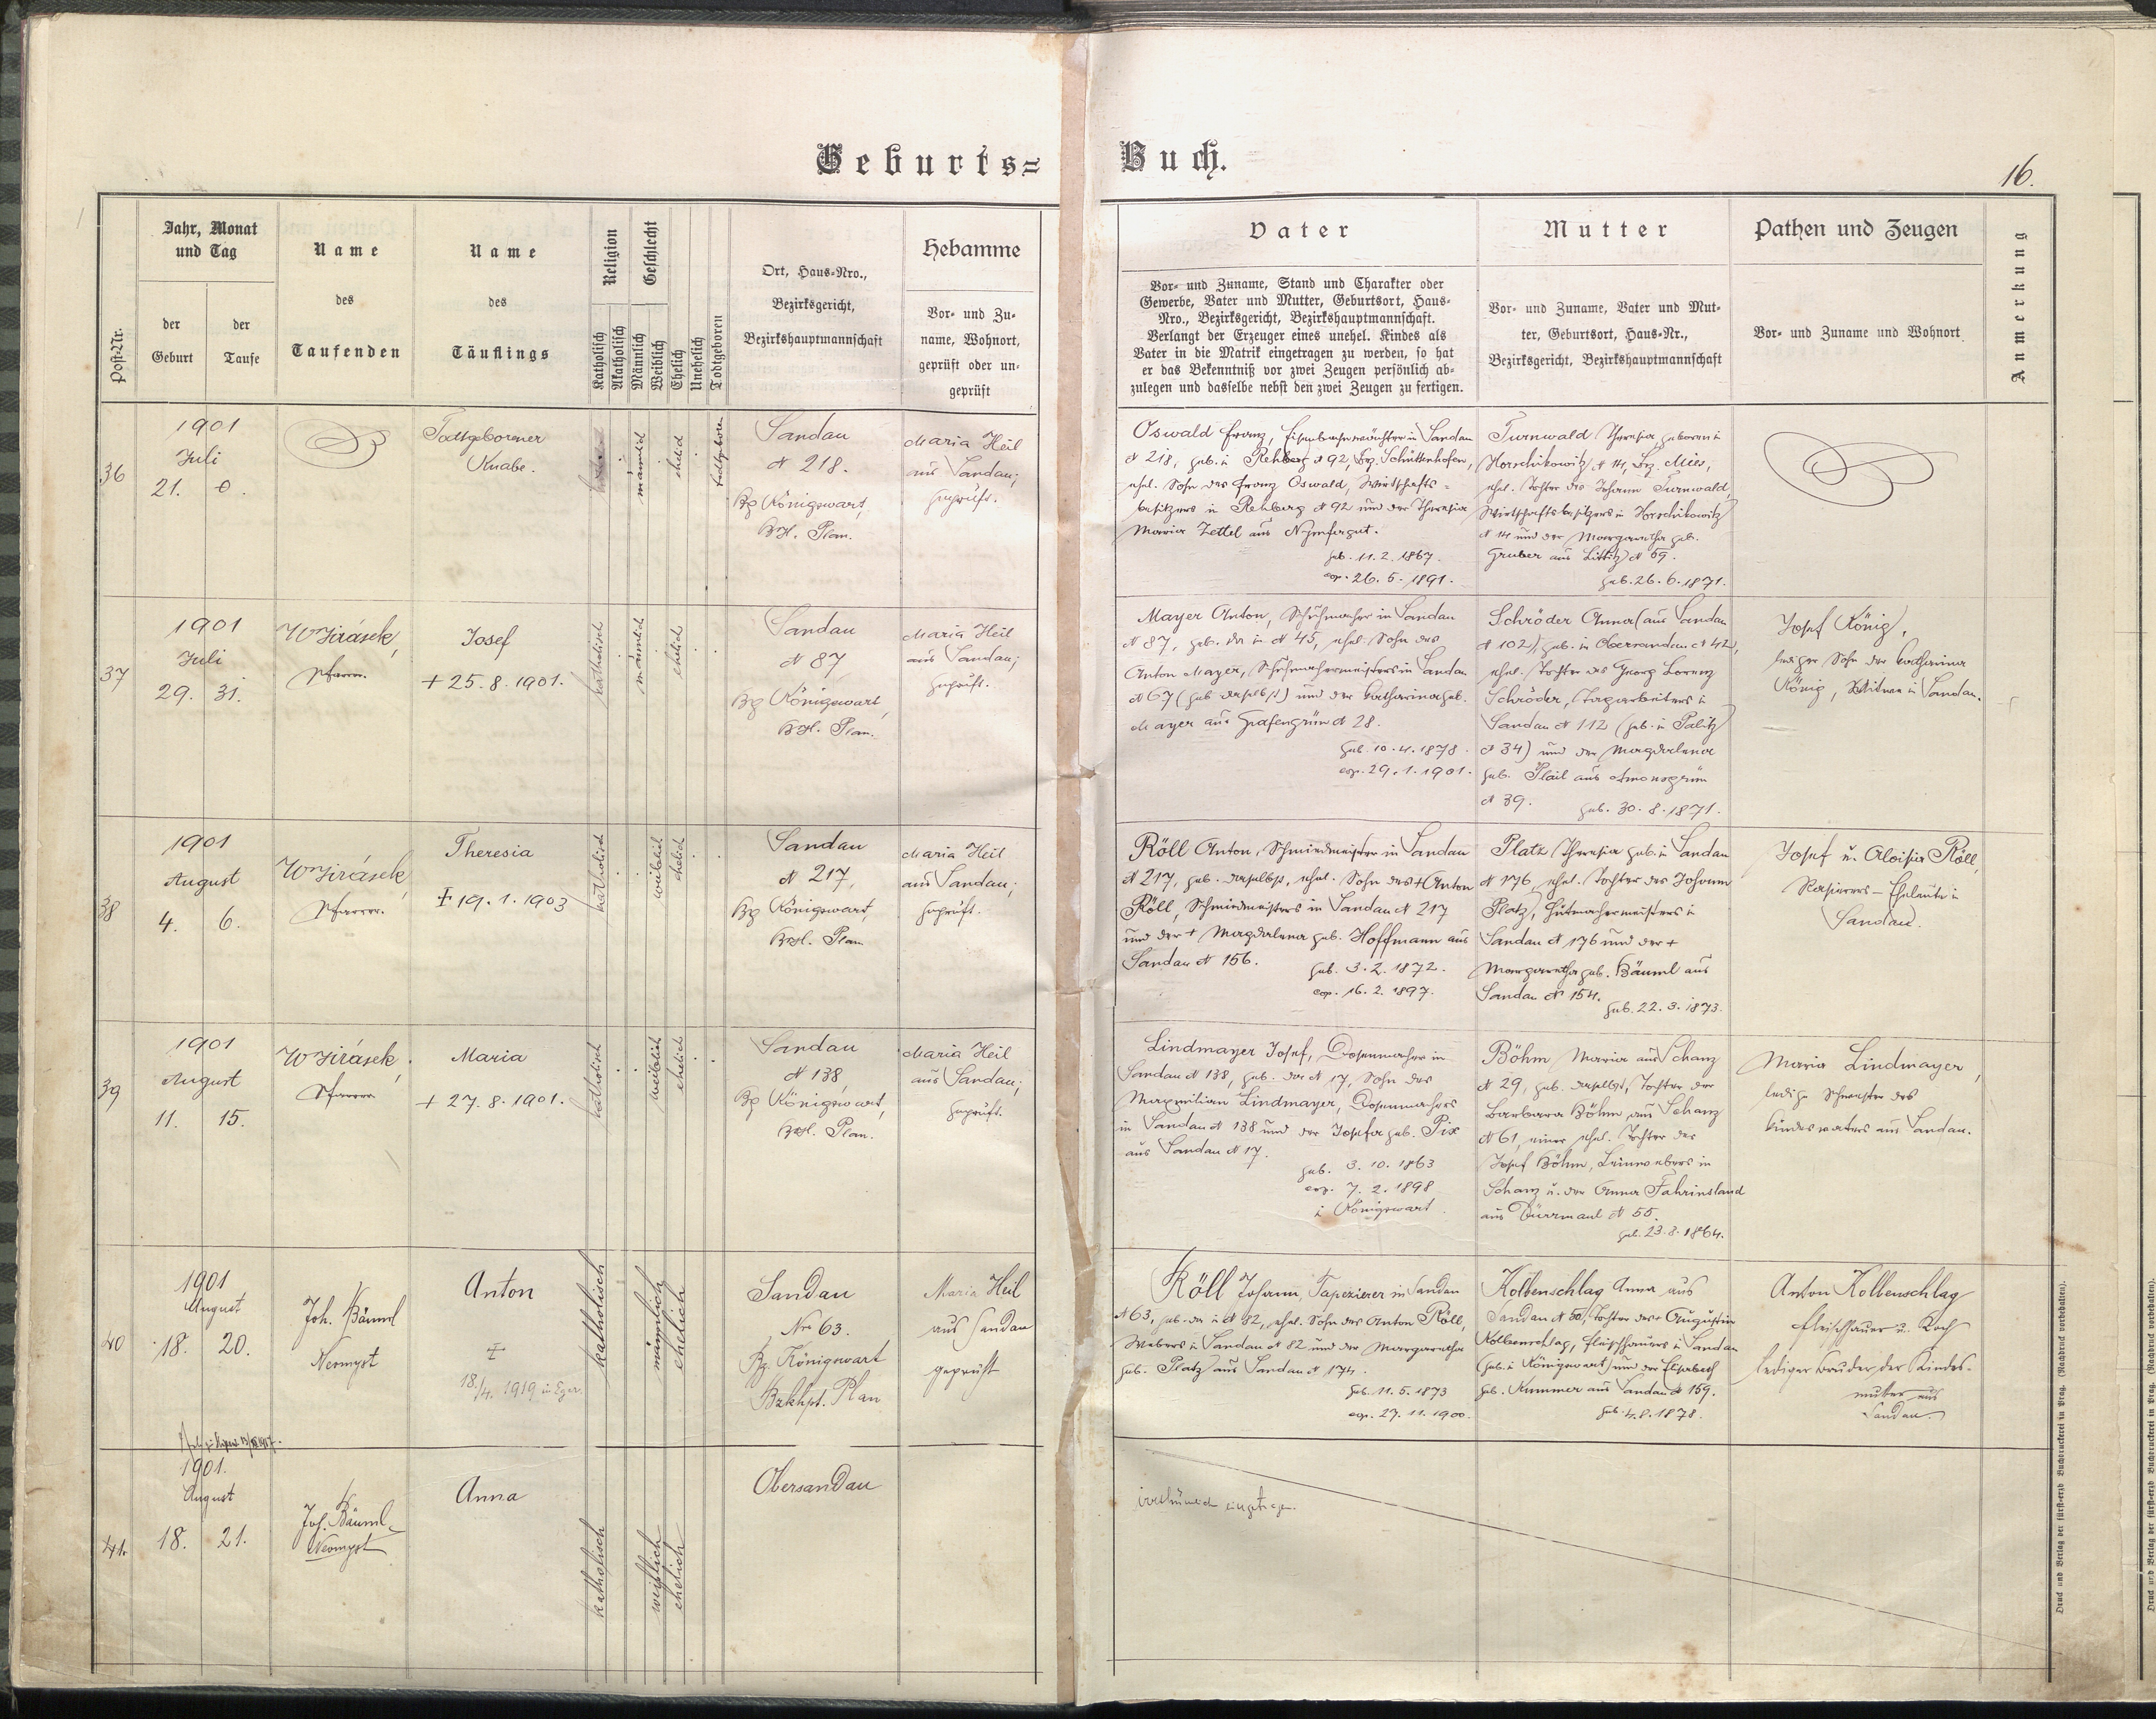 Geburts=
Buch.
16.
Post-Nr.
Jahr, Monat
und Tag
der
Geburt
der
Taufe
Name
des
Taufenden
Name
des
Täuflings
Religion
Katholisch
Akatholisch
Geschlecht
Männlich
Weiblich
Ehelich
Unehelich
Todtgeboren
Ort, Haus-Nro.,
Bezirksgericht,
Bezirkshauptmannschaft
Hebamme
Vor- und Zu-
name, Wohnort,
geprüft oder un-
geprüft
Vater
Vor- und Zuname, Stand und Charakter oder
Gewerbe, Vater und Mutter, Geburtsort, Haus-
Nro., Bezirksgericht, Bezirkshauptmannschaft.
Verlangt der Erzeuger eines unehel. Kindes als
Vater in die Matrik eingetragen zu werden, so hat
er das Bekenntniß vor zwei Zeugen persönlich ab-
zulegen und dasselbe nebst den zwei Zeugen zu fertigen.
Mutter
Vor- und Zuname, Vater und Mut-
ter, Geburtsort, Haus-Nr.,
Bezirksgericht, Bezirkshauptmannschaft
Pathen und Zeugen
Vor- und Zuname und Wohnort
Anmerkung
36
1901
Juli
21. 0.
Todtgeborener
Knabe.
männlich
ehelich
todtgeboren
Sandau
N 218.
Bz Königswart,
BzH. Plan.
Maria Heil
aus Sandau;
geprüft.
Oswald Franz, Eisenbahnwächter in Sandau
N 218, geb. in Rehberg N 92, Bz. Schüttenhofen,
ehel. Sohn des Franz Oswald, Wirtschafts-
besitzers in Rehberg N 92 und der Theresia
Maria Zettel aus
geb. 11. 2. 1867.
cop. 26. 5. 1891.
Turnwald Theresia geboren in
Horschikowitz N 14, Bz. Mies,
ehel. Tochter des Johann Turnwald,
Wirtschaftsbesitzers in Horschikowitz
N 14 und der Margaretha geb.
Gruber aus Littitz N 59.
geb. 26. 6. 1871.
37
1901
Juli
29. 31.
W Jirásek,
Pfarrer.
Josef
+ 25. 8. 1901.
katholisch
männlich
ehelich
Sandau
N 87
Bz Königswart,
BzH. Plan.
Maria Heil
aus Sandau;
geprüft.
Mayer Anton, Schuhmacher in Sandau
N 87, geb. da in N 45, ehel. Sohn des
Anton Mayer, Schuhmachermeisters in Sandau
N 67 (geb. daselbst) und der Katharina geb.
Mayer aus Grafengrün N 28.
geb. 10. 4. 1878.
cop. 29. 1. 1901.
Schröder Anna (aus Sandau
N 102), geb. in Obersandau N 42,
ehel. Tochter des Georg Lorenz
Schröder, Tagarbeiters in
Sandau N 112 (geb. in Palitz
N 34) und der Magdalena
geb. Plail aus Amonsgrün
N 39. geb. 30. 8. 1871.
Josef König,
lediger Sohn der Katharina
König, Witwe in Sandau.
38
1901
August
4. 6.
W Jirásek,
Pfarrer.
Theresia
+ 19. 1. 1903
katholisch
weiblich
ehelich
Sandau
N 217,
Bz Königswart,
BzH. Plan
Maria Heil
aus Sandau;
geprüft.
Röll Anton, Schmiedmeister in Sandau
N 217, geb. daselbst, ehel. Sohn des + Anton
Röll, Schmiedmeisters in Sandau N 217
und der + Magdalena geb. Hoffmann aus
Sandau N 156.
geb. 3. 2. 1872.
cop. 16. 2. 1897.
Platz Theresia geb. in Sandau
N 176, ehel. Tochter des Johann
Platz, Hutmachermeisters in
Sandau N 176 und der +
Margaretha geb. Bäuml aus
Sandau N 154.
geb. 22. 3. 1873.
Josef u. Aloisia Röll,
Eheleute in
Sandau.
39
1901
August
11. 15.
W Jirásek,
Pfarrer
Maria
+ 27. 8. 1901.
katholisch
weiblich
ehelich
Sandau
N 138,
Bz Königswart,
BzH. Plan.
Maria Heil
aus Sandau;
geprüft.
Lindmayer Josef, Dosenmacher in
Sandau N 138, geb. da N 17, Sohn des
Maximilian Lindmayer, Dosenmachers
in Sandau N 138 und der Josefa geb. Pix
aus Sandau N 17.
geb. 3. 10. 1863
cop. 7. 2. 1898
in Königswart.
Böhm Maria aus Schanz
N 29, geb. daselbst, Tochter der
Barbara Böhm aus Schanz
N 61, einer ehel. Tochter des
Josef Böhm, Leinwebers in
Schanz u. der Anna Fahrinsland
aus Dürrmaul N 55.
geb. 23. 8. 1864.
Maria Lindmayer,
ledige Schwester des
Kindesvaters aus Sandau.
40
1901
August
18. 20.
Joh. Bäuml
Neomyst
Anton
+
18./4. 1919 in Eger.
katholisch
männlich
ehelich
Sandau
Nro 63.
Bz. Königswart
Bzkhpt. Plan
Maria Heil
aus Sandau
geprüft
Röll Johann, Tapezierer in Sandau
N 63, geb. da in N 82, ehel. Sohn des Anton Röll,
Webers in Sandau N 82 und der Margaretha
geb. Platz aus Sandau N 174.
geb. 11. 5. 1873
cop. 27. 11. 1900.
Kolbenschlag Anna aus
Sandau N 50, Tochter des + Augustin
Kolbenschlag, Fleischhauers in Sandau
(geb. in Königswart) und der Elisabeth
geb. Kummer aus Sandau N 159.
geb. 4. 8. 1878.
Anton Kolbenschlag
Fleischhauer u. Koch
lediger Bruder der Kindes-
mutter aus
Sandau.
41.
1901.
August
18. 21.
Joh. Bäuml
Neomyst
Anna
katholisch
weiblich
ehelich
Obersandau
irrthümlich eingetragen.
Druck und Verlag der fürst-erzb. Buchdruckerei in Prag. (Nachdruck vorbehalten).